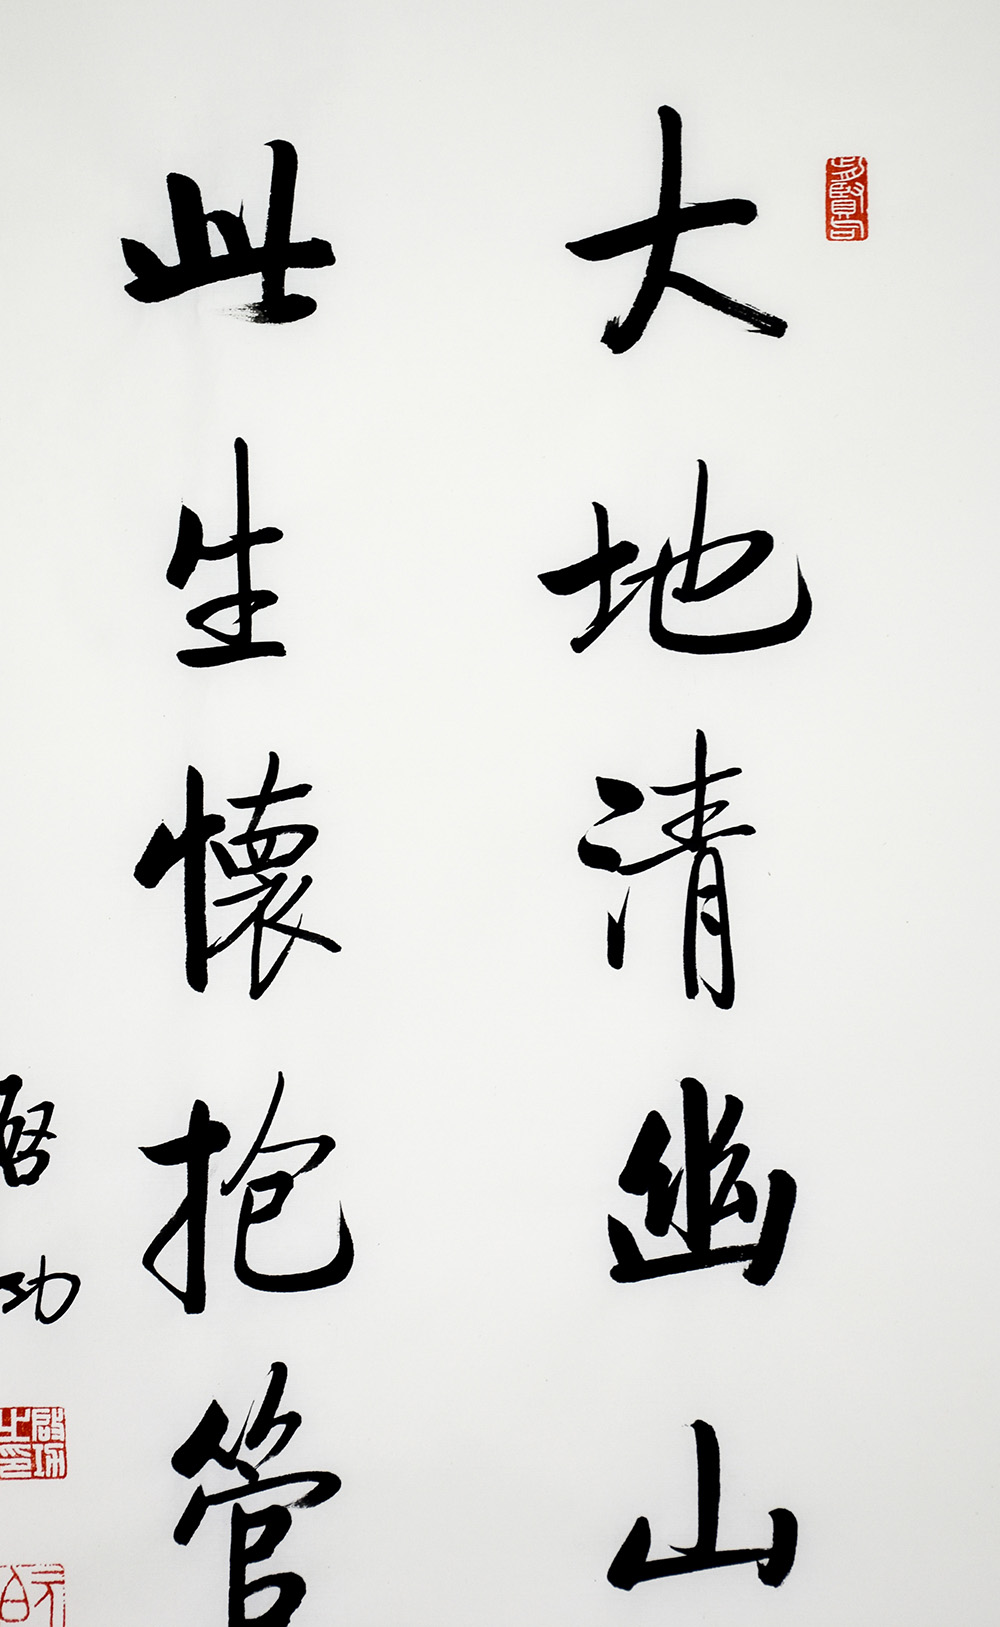 大地清幽山
此生懷抱管
啓功
啟功之印